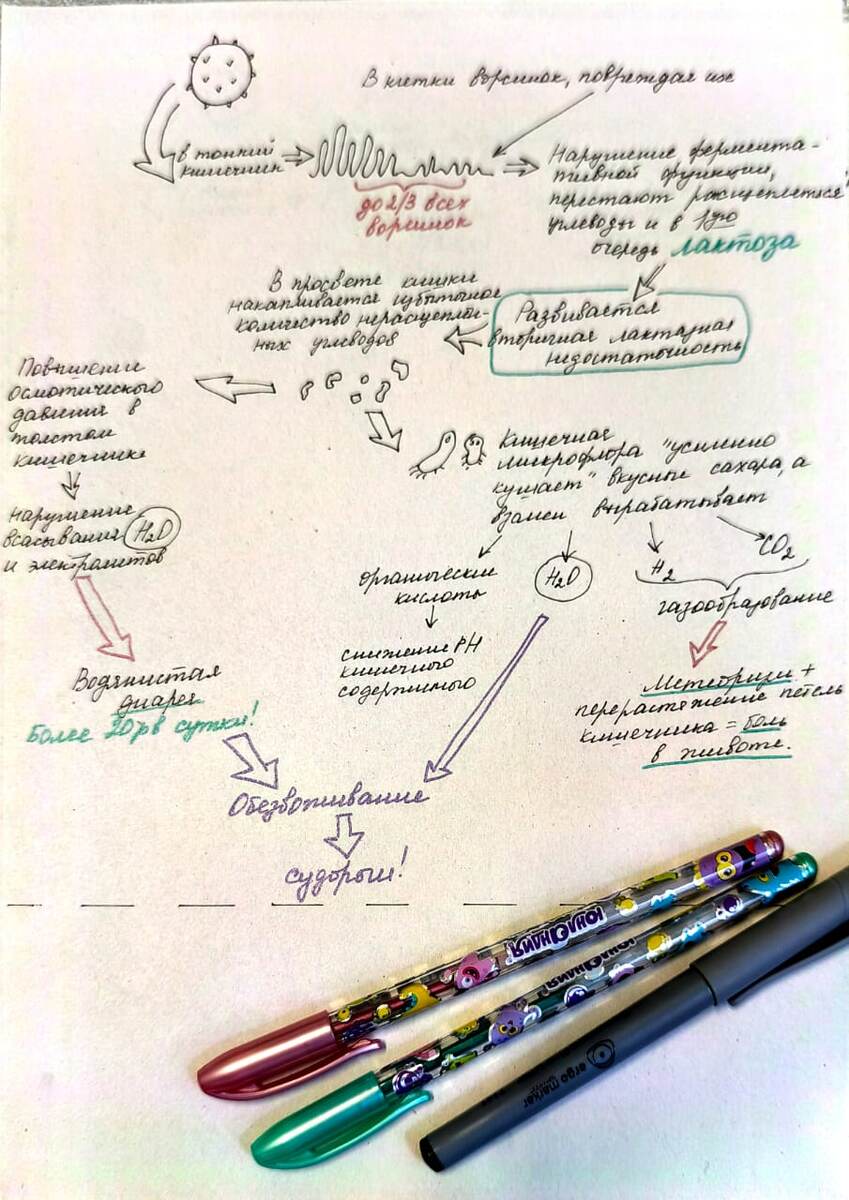 В клетки ворсинок, повреждая их
в тонкий
кишечник
до 2/3 всех
ворсинок
Нарушение фермента-
тивной функции,
перестают расщепляться
углеводы и в 1ую
очередь лактоза
Развивается
вторичная лактазная
недостаточность
В просвете кишки
накапливается избыточное
количество нерасщеплён-
ных углеводов
Повышение
осмотического
давления в
толстом
кишечнике
нарушение
всасывания H2O
и электролитов
Водянистая
диарея
Более 20 р в сутки!
Кишечная
микрофлора "усиленно
кушает" вкусные сахара, а
взамен вырабатывает
органические
кислоты
H2O
H2
CO2
газообразование
снижение PH
кишечного
содержимого
Метеоризм +
перерастяжение петель
кишечника = боль
в животе.
Обезвоживание
судороги!
ЮНЛАНДИЯ
ЮНЛАНДИЯ
argo marker